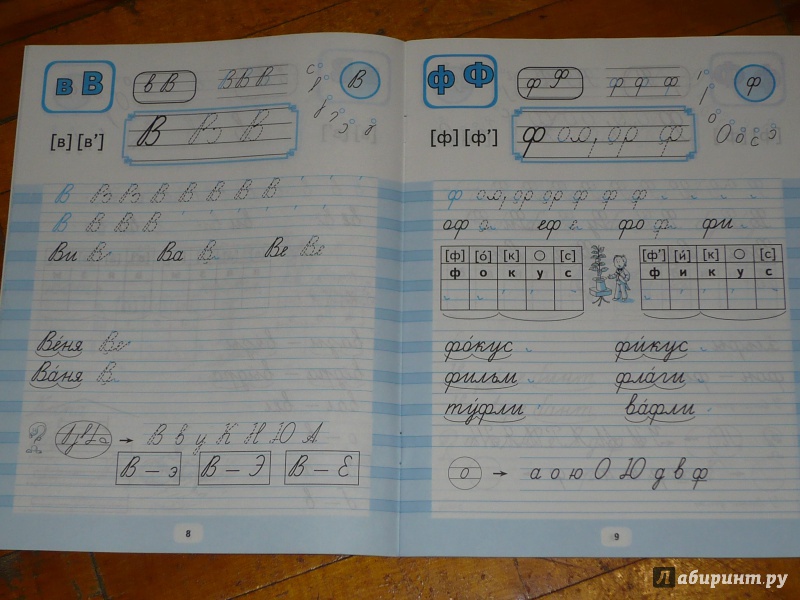 в В
в В
В В В
В
[в] [в′]
В В В
В В В В В В В В
В В В В
Ви В Ва В Ве Ве
Ве́ня Ве
Ва́ня В
→ В в у К Н Ю А
В – э В – Э В – Е
8
ф Ф
ф Ф
ф ф ф
ф
[ф] [ф′]
ф ф
ф ф ф ф
оф о еф е фо ф фи
[ф] [о́] [к] [с]
ф о к у с
[ф′] [и́] [к] [с]
ф и к у с
фо́кус фи́кус
фильм фла́ги
ту́фли ва́фли
о → а о ю О Ю д в ф
9
Лабиринт.ру